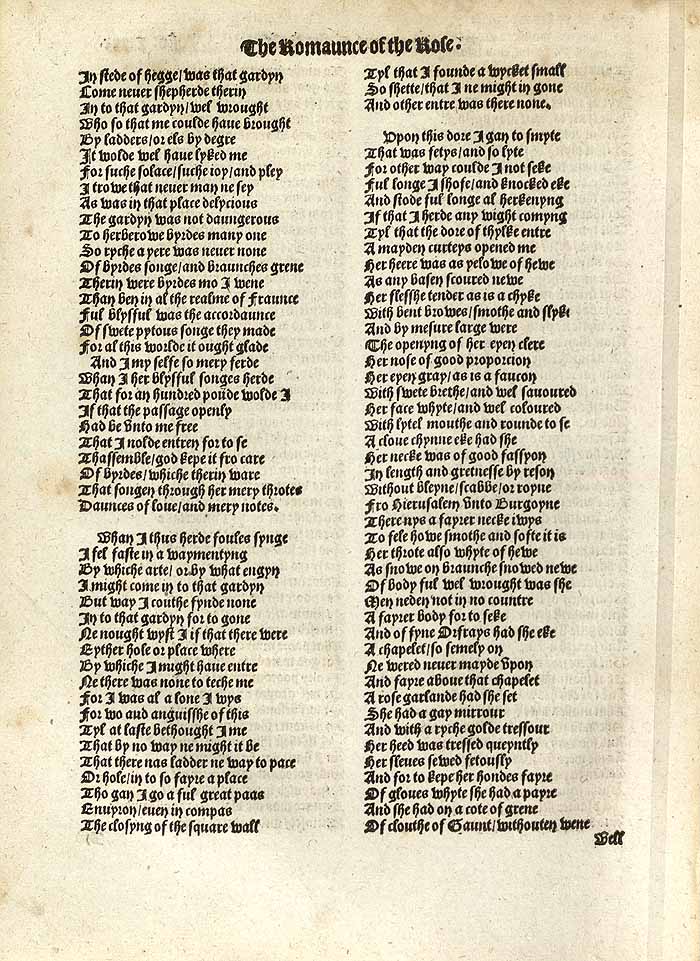 The Romaunce of the Rose.
In stede of hegge/was that gardyn
Come neuer shepherde therin
In to that gardyn/wel wrought
Who so that me coulde haue brought
By ladders/or els by degre
It wolde wel haue lyked me
For suche solace/suche ioy/and pley
I trowe that neuer man ne sey
As was in that place delycious
The gardyn was not daungerous
To herberowe byrdes many one
So ryche a yere was neuer none
Of byrdes songe/and braunches grene
Therin were byrdes mo I wene
Than ben in al the realme of Fraunce
Ful blysful was the accordaunce
Of swete pytous songe they made
For al this worlde it ought glade
And I my selfe so mery ferde
Whan I her blysful songes herde
That for an hundred poūde wolde I
If that the passage openly
Had be vnto me free
That I nolde entren for to se
Thassemble/god kepe it fro care
Of byrdes/whiche therin ware
That songen through her mery throtes
Daunces of loue/and mery notes.
Whan I thus herde foules synge
I fel faste in a waymentyng
By whiche arte/or by what engyn
I might come in to that gardyn
But way I couthe fynde none
In to that gardyn for to gone
Ne nought wyst I if that there were
Eyther hole or place where
By whiche I might haue entre
Ne there was none to teche me
For I was al a lone I wys
For wo and anguisshe of this
Tyl at laste bethought I me
That by no way ne might it be
That there nas ladder ne way to pace
Or hole/in to so fayre a place
Tho gan I go a ful great paas
Enuyron/euen in compas
The closyng of the square wall
Tyl that I founde a wycket small
So shette/that I ne might in gone
And other entre was there none.
Vpon this dore I gan to smyte
That was fetys/and so lyte
For other way coulde I not seke
Ful longe I shofe/and knocked eke
And stode ful longe al herkenyng
If that I herde any wight comyng
Tyl that the dore of thylke entre
A mayden curteys opened me
Her heere was as yelowe of hewe
As any basen scoured newe
Her flesshe tender as is a chyke
With bent browes/smothe and slyke
And by mesure large were
The openyng of her eyen clere
Her nose of good proporcion
Her eyen gray/as is a faucon
With swete brethe/and wel sauoured
Her face whyte/and wel coloured
With lytel mouthe and rounde to se
A cloue chynne eke had she
Her necke was of good fassyon
In length and gretnesse by reson
Without bleyne/scabbe/or royne
Fro Hierusalem vnto Burgoyne
There nys a fayrer necke iwys
To fele howe smothe and softe it is
Her throte also whyte of hewe
As snowe on braunche snowed newe
Of body ful wel wrought was she
Men neden not in no countre
A fayrer body for to seke
And of fyne Orfrays had she eke
A chapelet/so semely on
Ne wered neuer mayde vpon
And fayre aboue that chapelet
A rose garlande had she set
She had a gay mirrour
And with a ryche golde tressour
Her heed was tressed queyntly
Her sleues sewed fetously
And for to kepe her hondes fayre
Of gloues whyte she had a payre
And she had on a cote of grene
Of clouthe of Gaunt/withouten wene
Well